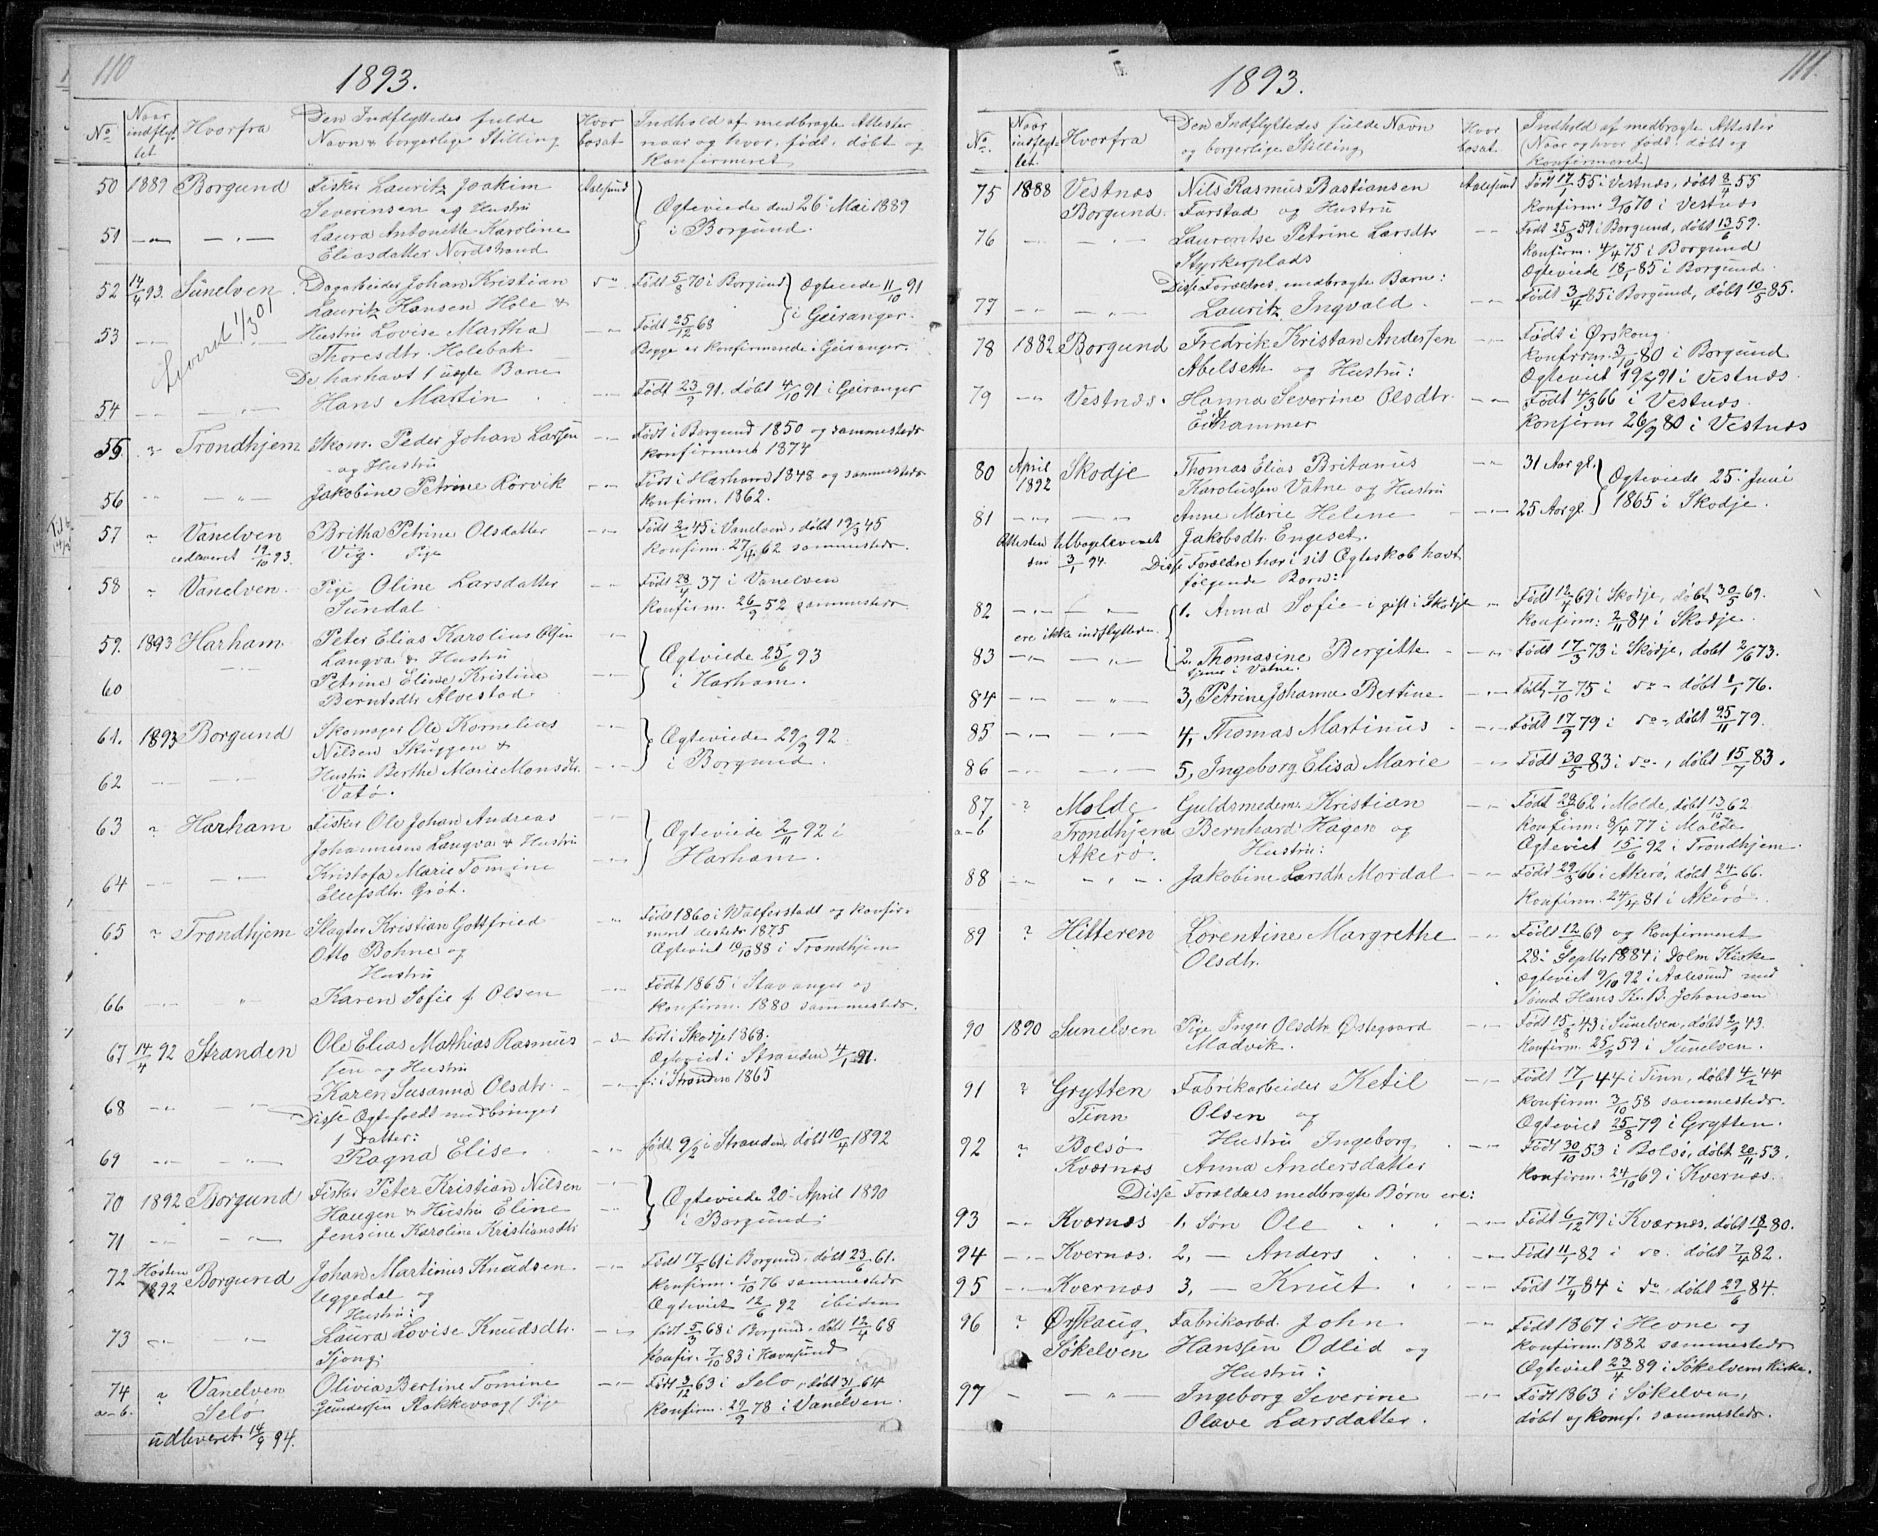 110
1893.
No
Naar indflyttet
Hvorfra
Den Indflyttedes fulde Navn & borgerlige Stilling
Hvor bosat
Indhold af medbragte Attester naar og hvor født, døbt og konfirmeret
50 1889 Borgund Fisker Lauritz Joakim Aalesund
Severinsen og Hustru Ægteviede den 26 Mai 1889
51 Laura Antonette Karoline i Borgund.
Eliasdatter Nordstrand
52 14/4 93. Sunelven Dagarbeider Johan Kristian Født 5/8 70 i Borgund Ægteviede 11/10 91
Lauritz Hansen Hole & i Geiranger.
53 Hustru Lovise Martha Født 25/12 68
Thoresdtr. Holebak Begge er konfirmerede i Geiranger.
De har havt 1 uægte Barn
54 Hans Martin Født 23/9 91. døbt 4/10 91 i Geiranger
55. Trondhjem Skom. Peder Johan Larsen Født i Borgund 1850 og sammesteds
og Hustru konfirmeret 1874
56 Jakobine Petrine Rørvik Født i Harham 1848 og sammesteds
konfirm. 1862.
57 Vanelven Britha Petrine Olsdatter Født 2/2 45 i Vanelven, døbt 12/3 45
19/10 93. Vig. Pige konfirm. 27/4 62 sammesteds.
58 Vanelven. Pige Oline Larsdatter Født 28/4 37 i Vanelven
Sundal. konfirm. 26/9 52 sammesteds
59. 1893 Harham Peter Elias Karolius Olsen
Langva & Hustru Ægteviede 25/6 93
60 Petrine Eline Kristine i Harham.
Berntsdtr Alvestad
61. 1893 Borgund Skomager Ole Kornelius
Nilsen Skuggen & Ægteviede 29/9 92
62 Hustru Berthe Marie Monsdtr. i Borgund.
Vatø.
63 Harham Fisker Ole Johan Andreas Ægteviede 2/11 92 i
Johannesens Langva & Hustru Harham.
64 Kristofa Marie Tomine
Ellefsdtr. Grøt.
65 Trondhjem Slagter Kristian Gottfried Født 1860 i Walferstadt og konfir-
Otto Bohne og meret desteds 1875
Hustru Ægteviet 19/10 88 i Trondhjem
66 Karen Sofie f. Olsen Født 1865 i Stavanger og
konfirm. 1880 sammesteds.
67 14/4 92 Stranden Ole Elias Mathias Rasmus- Født i Skodje 1868.
sen og Hustru Ægteviet i Stranden 4/1 91.
Karen Susanna Olsdtr. f. i Stranden 1865
68 Disse Ægtefolk medbringer
1 Datter:
69 Ragna Elise født 9/2 i Stranden, døbt 10/4 1892
70 1892 Borgund Fisker Peter Kristian Nilsen Ægteviede 20. April 1890
Haugen & Hustru Eline i Borgund.
71 Jensine Karoline Kristiansdtr
72 Høsten 1892 Borgund Johan Martinus Knudsen Født 17/5 61 i Borgund, døbt 23/6 61.
eggedal og konfirm. 1/10 76 sammesteds
Hustru: Ægteviet 12/6 92 ibidem
73 Laura Lovise Knudsdtr. født 5/3 68 i Borgund. døbt 12/4 68
konfir. 7/10 83 i
74 Vanelven Olivia Bertine Tomine Født 3/12 63 i Selø, døbt 3/1 64
a-b. Selø Gundersen Rakkevaag Pige konfirm. 29/9 78 i Vanelven.
udleveret 14/9 94.
111.
1893.
No.
Naar indflyttet.
Hvorfra
Den Indflyttedes fulde Navn og borgerlige Stilling
Hvor bosat
Indhold af medbragte Attester (Naar og hvor født, døbt og konfirmeret)
75 1888 Vestnæs Nils Rasmus Bastiansen Aalesund Født 17/1 55 i Vestnæs, døbt 8/4 55
Borgund. Farstad og Hustru konfirm. 9/10 70 i Vestnæs
76 Laurentse Petrine Larsdtr Født 25/3 59 i Borgund, døbt 13/6 59.
Styrkerplads konfirm. 4/4 75 i Borgund
Disse Forældres medbragte Barn: Ægteviede 18/ 85 i Borgund.
77 Lauritz Ingvald. Født 3/4 85 i Borgund, døbt 10/5 85.
78 1882 Borgund Fredrik Kristan Andersen Født i Ørskoug.
Abelseth og Hustru: konfirm. 3/10 80 i Borgund
Ægteviet 19/ 91 i Vestnæs.
79 Vestnæs. Hanna Severine Olsdtr. Født 4/3 66 i Vestnæs.
Eidhammer konfirm 26/9 80 i Vestnæs
80 April 1892 Skodje Thomas Elias Britanus 31 Aar gl. Ægteviede 25 Juni
Karolussen Vatne og Hustru 1865 i Skodje.
81 Anne Marie Helene 25 Aar gl.
Attesten tilbageleveret Jakobsdtr. Engeset.
den 3/1 94. Disse Forældre har i sit Ægteskab havt
følgende Børn:
82 1. Anna Sofie - i gift i Skodje Født 12/4 69 i Skodje, døbt 30/5 69.
ere ikke indflyttede. konfirm: 2/11 84 i Skodje.
83 2, Thomasine Bergitte Født 17/3 73 i Skodje, døbt 2/6 73.
tjener i Vatne.
84 3, Petrine Johanna Bertine Født 7/10 75 i do døbt 1/1 76.
85 4, Thomas Martinus Født 17/9 79 i do, døbt 25/11 79.
86 5, Ingeborg Elisa Marie Født 30/5 83 i do, døbt 15/7 83.
87 Molde Guldsmedem. Kristian Født 28/6 62 i Molde, døbt 13/10 62
a-b Trondhjem Bernhard Hagen og konfirm: 8/4 77 i Molde
Akerø. Hustru: Ægteviet 15/6 92 i Trondhjem.
88 Jakobine Larsdtr Mordal Født 29/3 66 i Akerø, døbt 24/6 66.
konfirm. 24/4 81 i Akerø
89 Hitteren Lorentine Margrethe Født 12/6 69 og konfirmeret
Olsdtr. 28 Septbr 1884 i Dolm Kirke
Ægteviet 9/10 92 i Aalesund med
Sømd Hans Kr. B. Johansen
90 1890 Sunelven Pige Inger Olsdtr Østegaard Født 15/8 43 i Sunelven, døbt 2/9 43.
Madvik. konfirm. 25/9 59 i Sunelven.
91 Grytten Fabrikarbeider Ketil Født 17/1 44 i Tinn, døbt 4/2 44
Tinn Olsen og konfirm. 3/10 58 sammesteds.
Ægteviet 25/8 79 i Grytten.
92 Bolsø Hustru Ingeborg Født 30/10 53 i Bolsø, døbt 20/11 53.
Kværnæs Anna Andersdatter konfirm. 24/10 69 i Kvernæs.
Disse Forældres medbragte Børn ere:
93 Kværnæs 1, Søn Ole Født 6/12 79 i Kværnæs, døbt 18/1 80.
94 Kvernæs. 2, - Anders Født 11/1 82 i do døbt 7/4 82.
95 Kvernæs 3, - Knut Født 17/4 84 i do, døbt 29/6 84.
96 Ørskaug Fabrikarbd. John Født 1867 i Hevne og
Søkelven Hanssen Odlid og konfirm. 1882 sammesteds
Hustru: Ægteviet 23/4 89 i Søkelvens Kirke.
97 Ingeborg Severine Født 1863 i Søkelven,
Olave Larsdatter. døbt og konf. sammesteds.